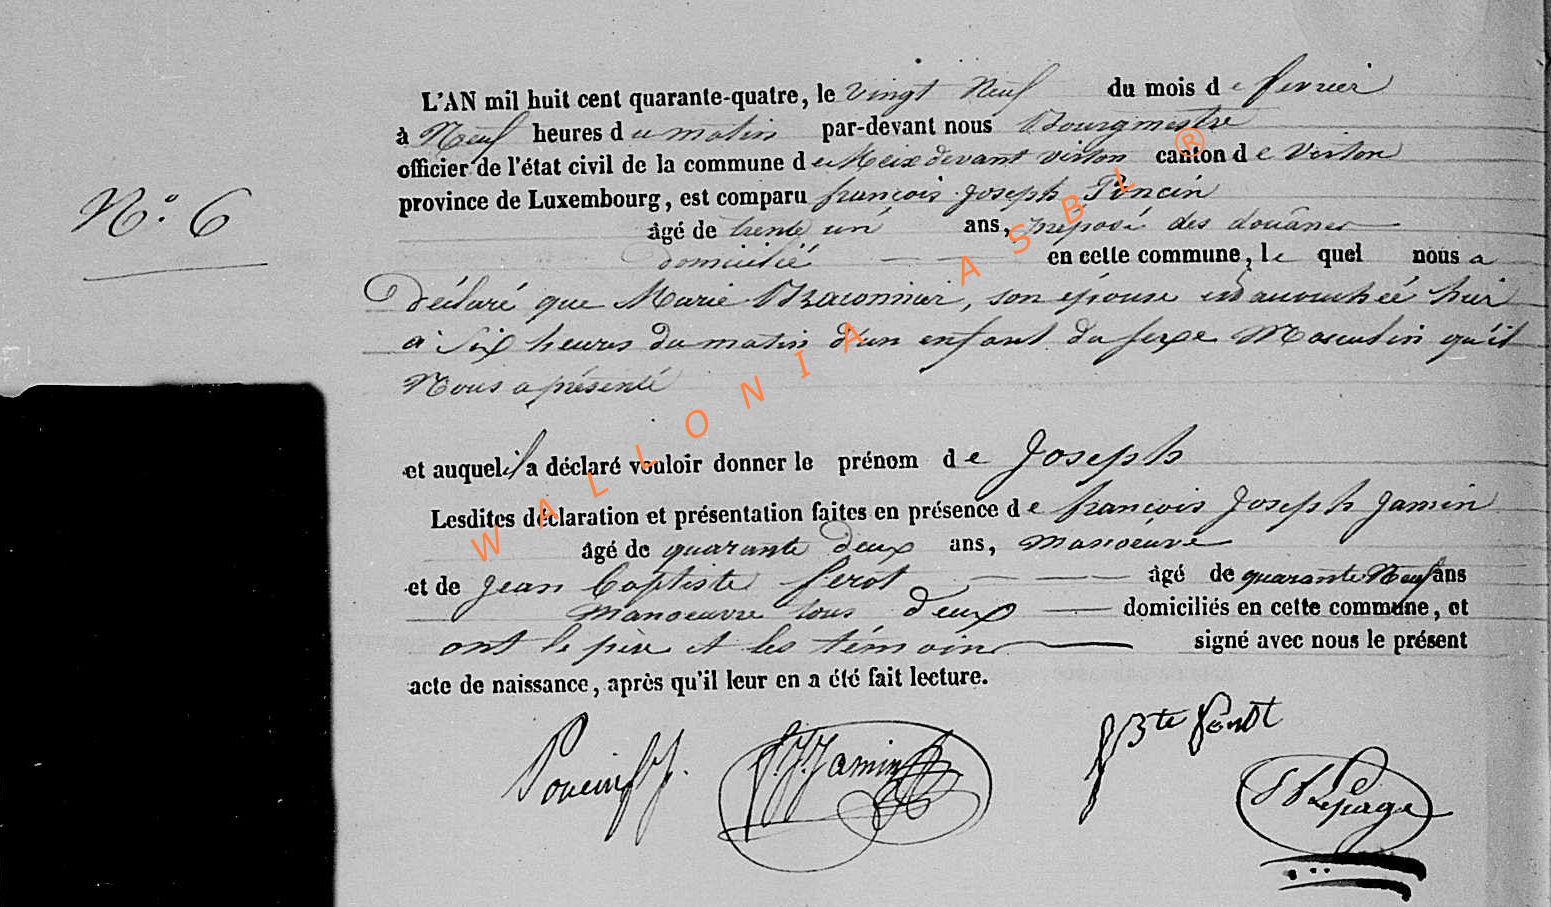 L'AN mil huit cent quarante-quatre, le vingt Neuf du mois de fevrier
à Neuf heures du matin par-devant nous Bourgmestre
officier de l'état civil de la commune de Meix devant virton canton de Virton
N.° 6
province de Luxembourg, est comparu françois Joseph Poncin
âgé de trente un ans, préposé des douânes
domicilié en cette commune, le quel nous a
Déclaré que Marie Braconnier, son épouse est accouchée hier
à Six heures du matin d'un enfant du sexe Masculin qu'il
Nous a présenté
et auquel il a déclaré vouloir donner le prénom de Joseph
Lesdites déclaration et présentation faites en présence de françois Joseph Jamin
âgé de quarante deux ans, manoeuvre
et de Jean Baptiste ferot âgé de quarante Neuf ans
manoeuvre tous deux domiciliés en cette commune, et
ont le père et les témoins signé avec nous le présent
acte de naissance, après qu'il leur en a été fait lecture.
Poncin f J. f.J. Jamin J Bte
Lepage
WALLONIA ASBL ®